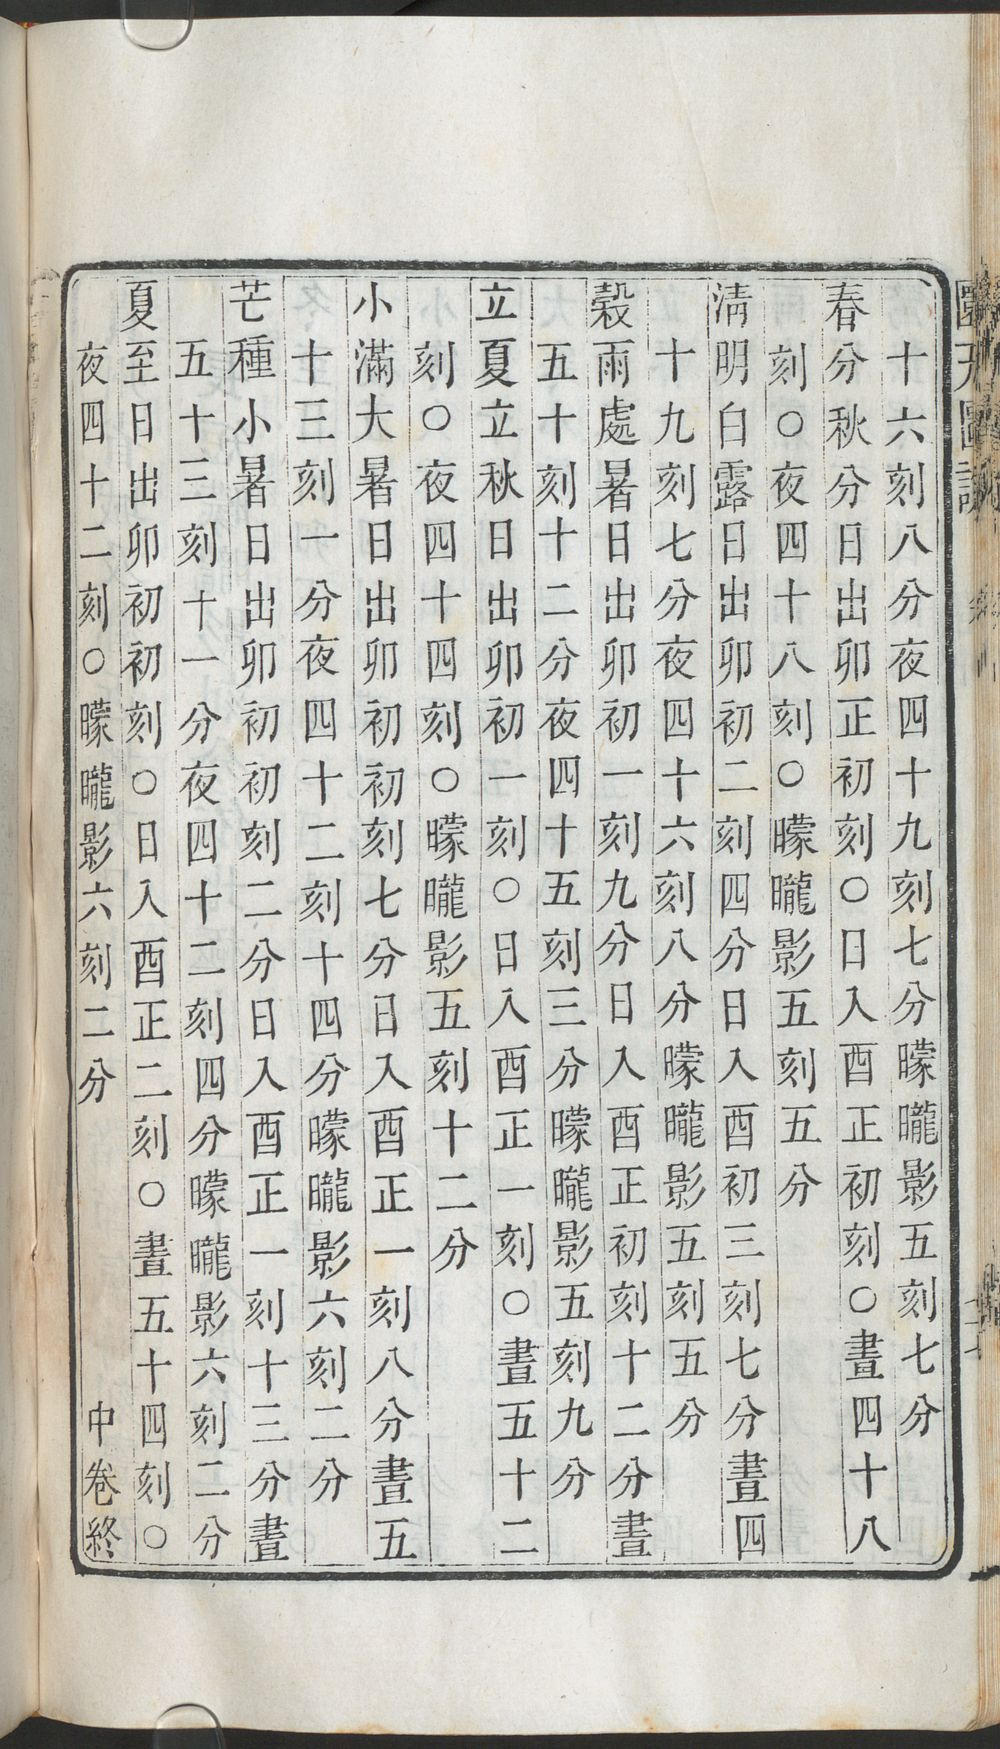 圜天圖說
十六刻八分夜四十九刻七分曚曨影五刻七分
春分秋分日出卯正初刻〇日入酉正初刻〇晝四十八
刻〇夜四十八刻〇曚曨影五刻五分
清明白露日出卯初二刻四分日入酉初三刻七分晝四
十九刻七分夜四十六刻八分曚曨影五刻五分
穀雨處暑日出卯初一刻九分日入酉正初刻十二分晝
五十刻十二分夜四十五刻三分曚曨影五刻九分
立夏立秋日出卯初一刻〇日入酉正一刻〇晝五十二
刻〇夜四十四刻〇曚曨影五刻十二分
小滿大暑日出卯初初刻七分日入酉正一刻八分晝五
十三刻一分夜四十二刻十四分曚曨影六刻二分
芒種小暑日出卯初初刻二分日入酉正一刻十三分晝
五十三刻十一分夜四十二刻四分曚曨影六刻二分
夏至日出卯初初刻〇日入酉正二刻〇晝五十四刻〇
夜四十二刻〇曚曨影六刻二分 中卷終